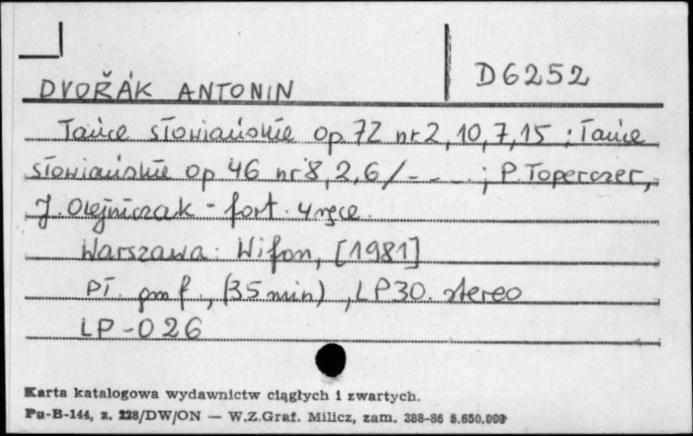 D6252
DVOŘÁK ANTONIN
Tańce słowiańskie op. 72 nr 2, 10, 7, 15 ; Tańce
słowiańskie op. 46 nr 8, 2, 6 /- - - . ; P. Toperczer,
J. Olejniczak - fort. 4 ręce.
Warszawa: Wifon, [1981]
Pł. gmf., (35 min), LP30. stereo
LP-026
Karta katalogowa wydawnictw ciągłych i zwartych.
Pu-B-144, z. 228/DW/ON — W.Z.Graf. Milicz, zam. 388-86 5.650.000